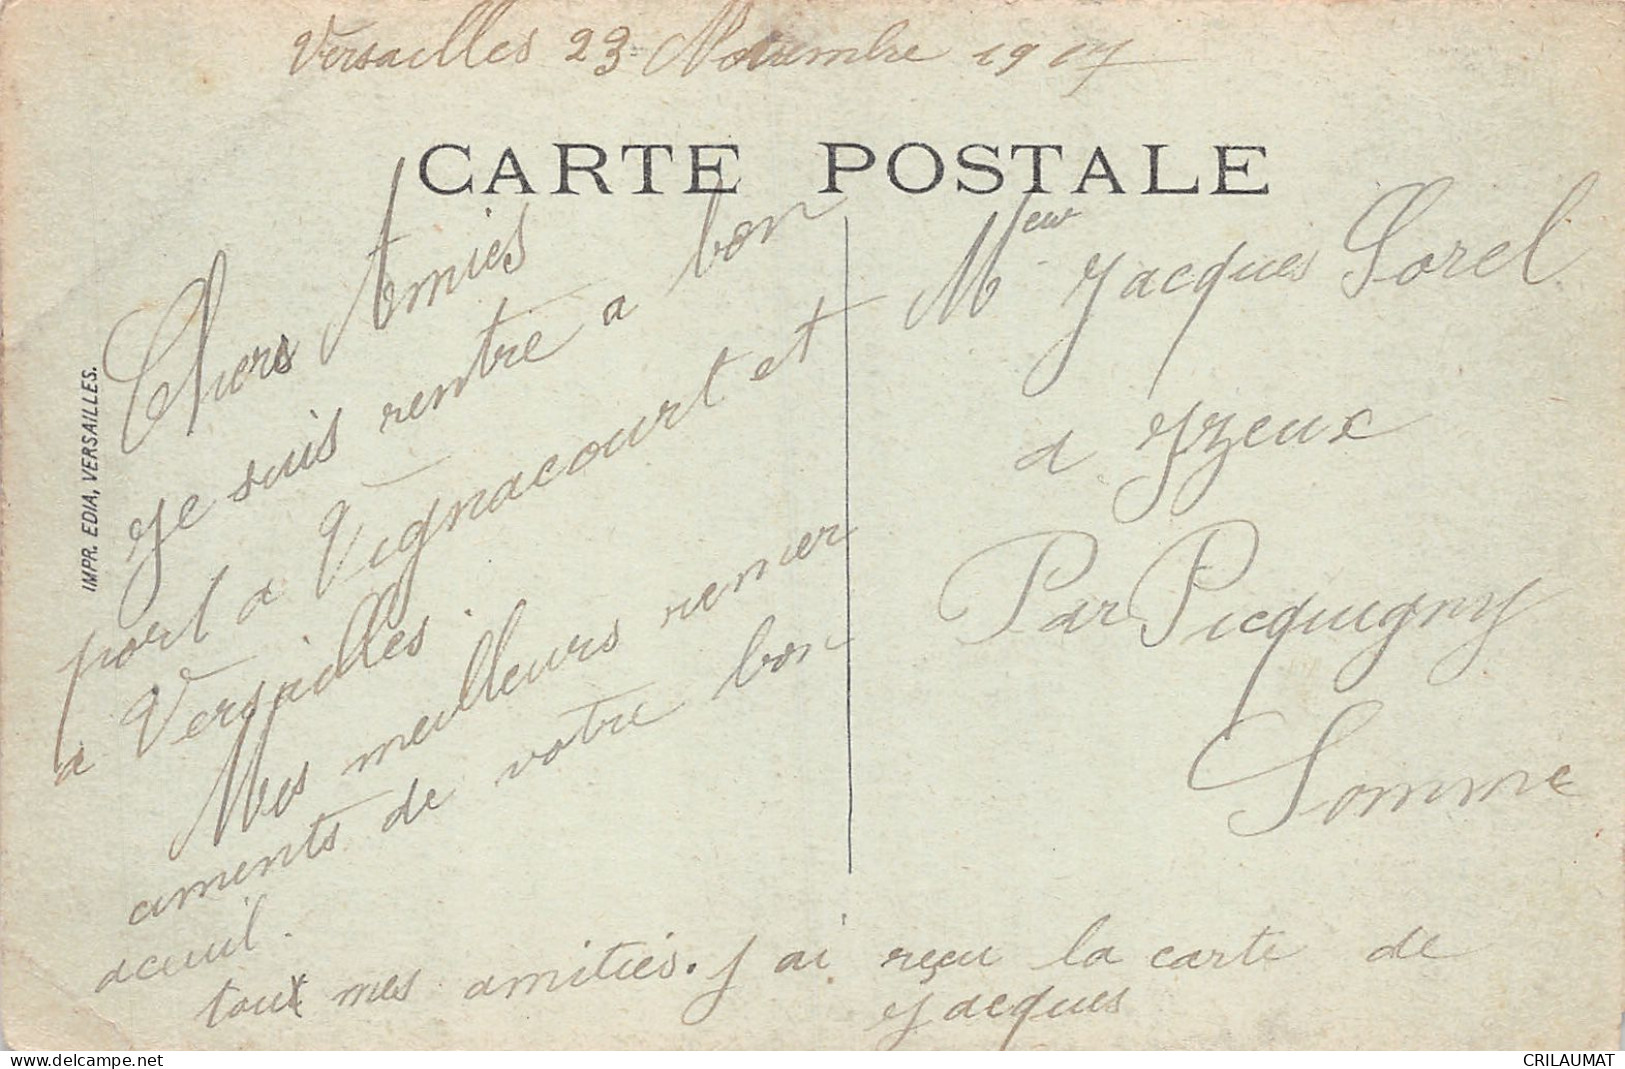 Versailles 23 Novembre 1917
CARTE POSTALE
Chers Amies
Je suis rentre a bon
port a Vignacourt et
a Versailles.
Mes meilleurs remer
ciments de votre bon
aceuil.
tout mes amitiés. J'ai reçu la carte de
Jacques
Meur Jacques Sorel
a Yzeux
Par Picquigny
Somme
IMPR. EDIA, VERSAILLES.
www.delcampe.net
CRILAUMAT